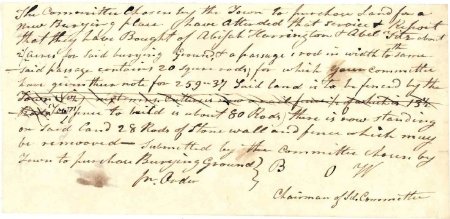 The Committee Chosen by the Town to purchase Land for a
new Burying place have Attended that Service & Report
that they have Bought of Abijah Harrington & Abel
2 acres for said burying Ground & a passage 1 rod in width to the same
Said passage contains 20 rods, for which your committee
have given their note for 259-37 Said Land is to be fenced by the
Town
fence to build is about 80 Rods, there is now standing
on Said Land 28 Rods of Stone wall and fence which may
be removed — Submitted by the Committee chosen by
Town to purchase Burying Ground } B O W
pr. Order
Chairman of Sd. Committee